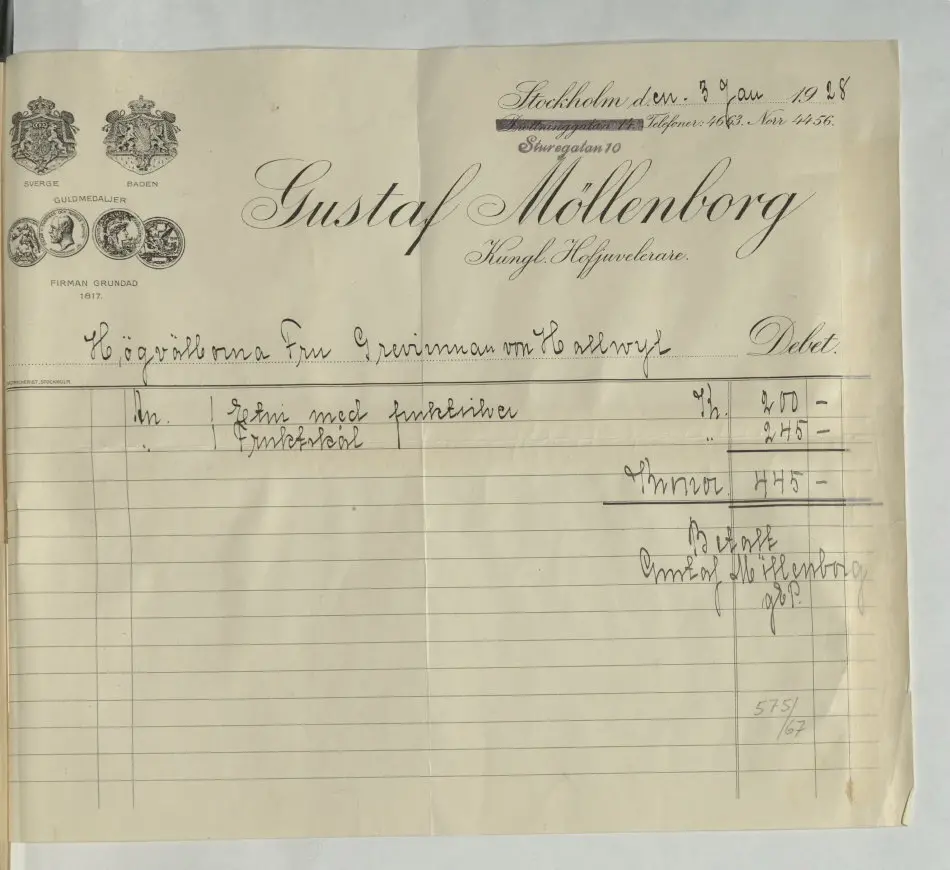 Stockholm den. 3 Jan 1928
Drottninggatan 14. Telefoner: 4663. Norr 4456.
Sturegatan 10
SVERGE BADEN
GULDMEDALJER
Gustaf Möllenborg
Kungl. Hofjuvelerare.
FIRMAN GRUNDAD
1817.
Högvälborna Fru Grevinnan von Hallwyl Debet.
1 Etui med fruktsilver Kr. 200 -
„ 1 Fruktskål „ 245 -
Kronor 445 -
Betalt
Gustaf Möllenborg
gEP.
575/67